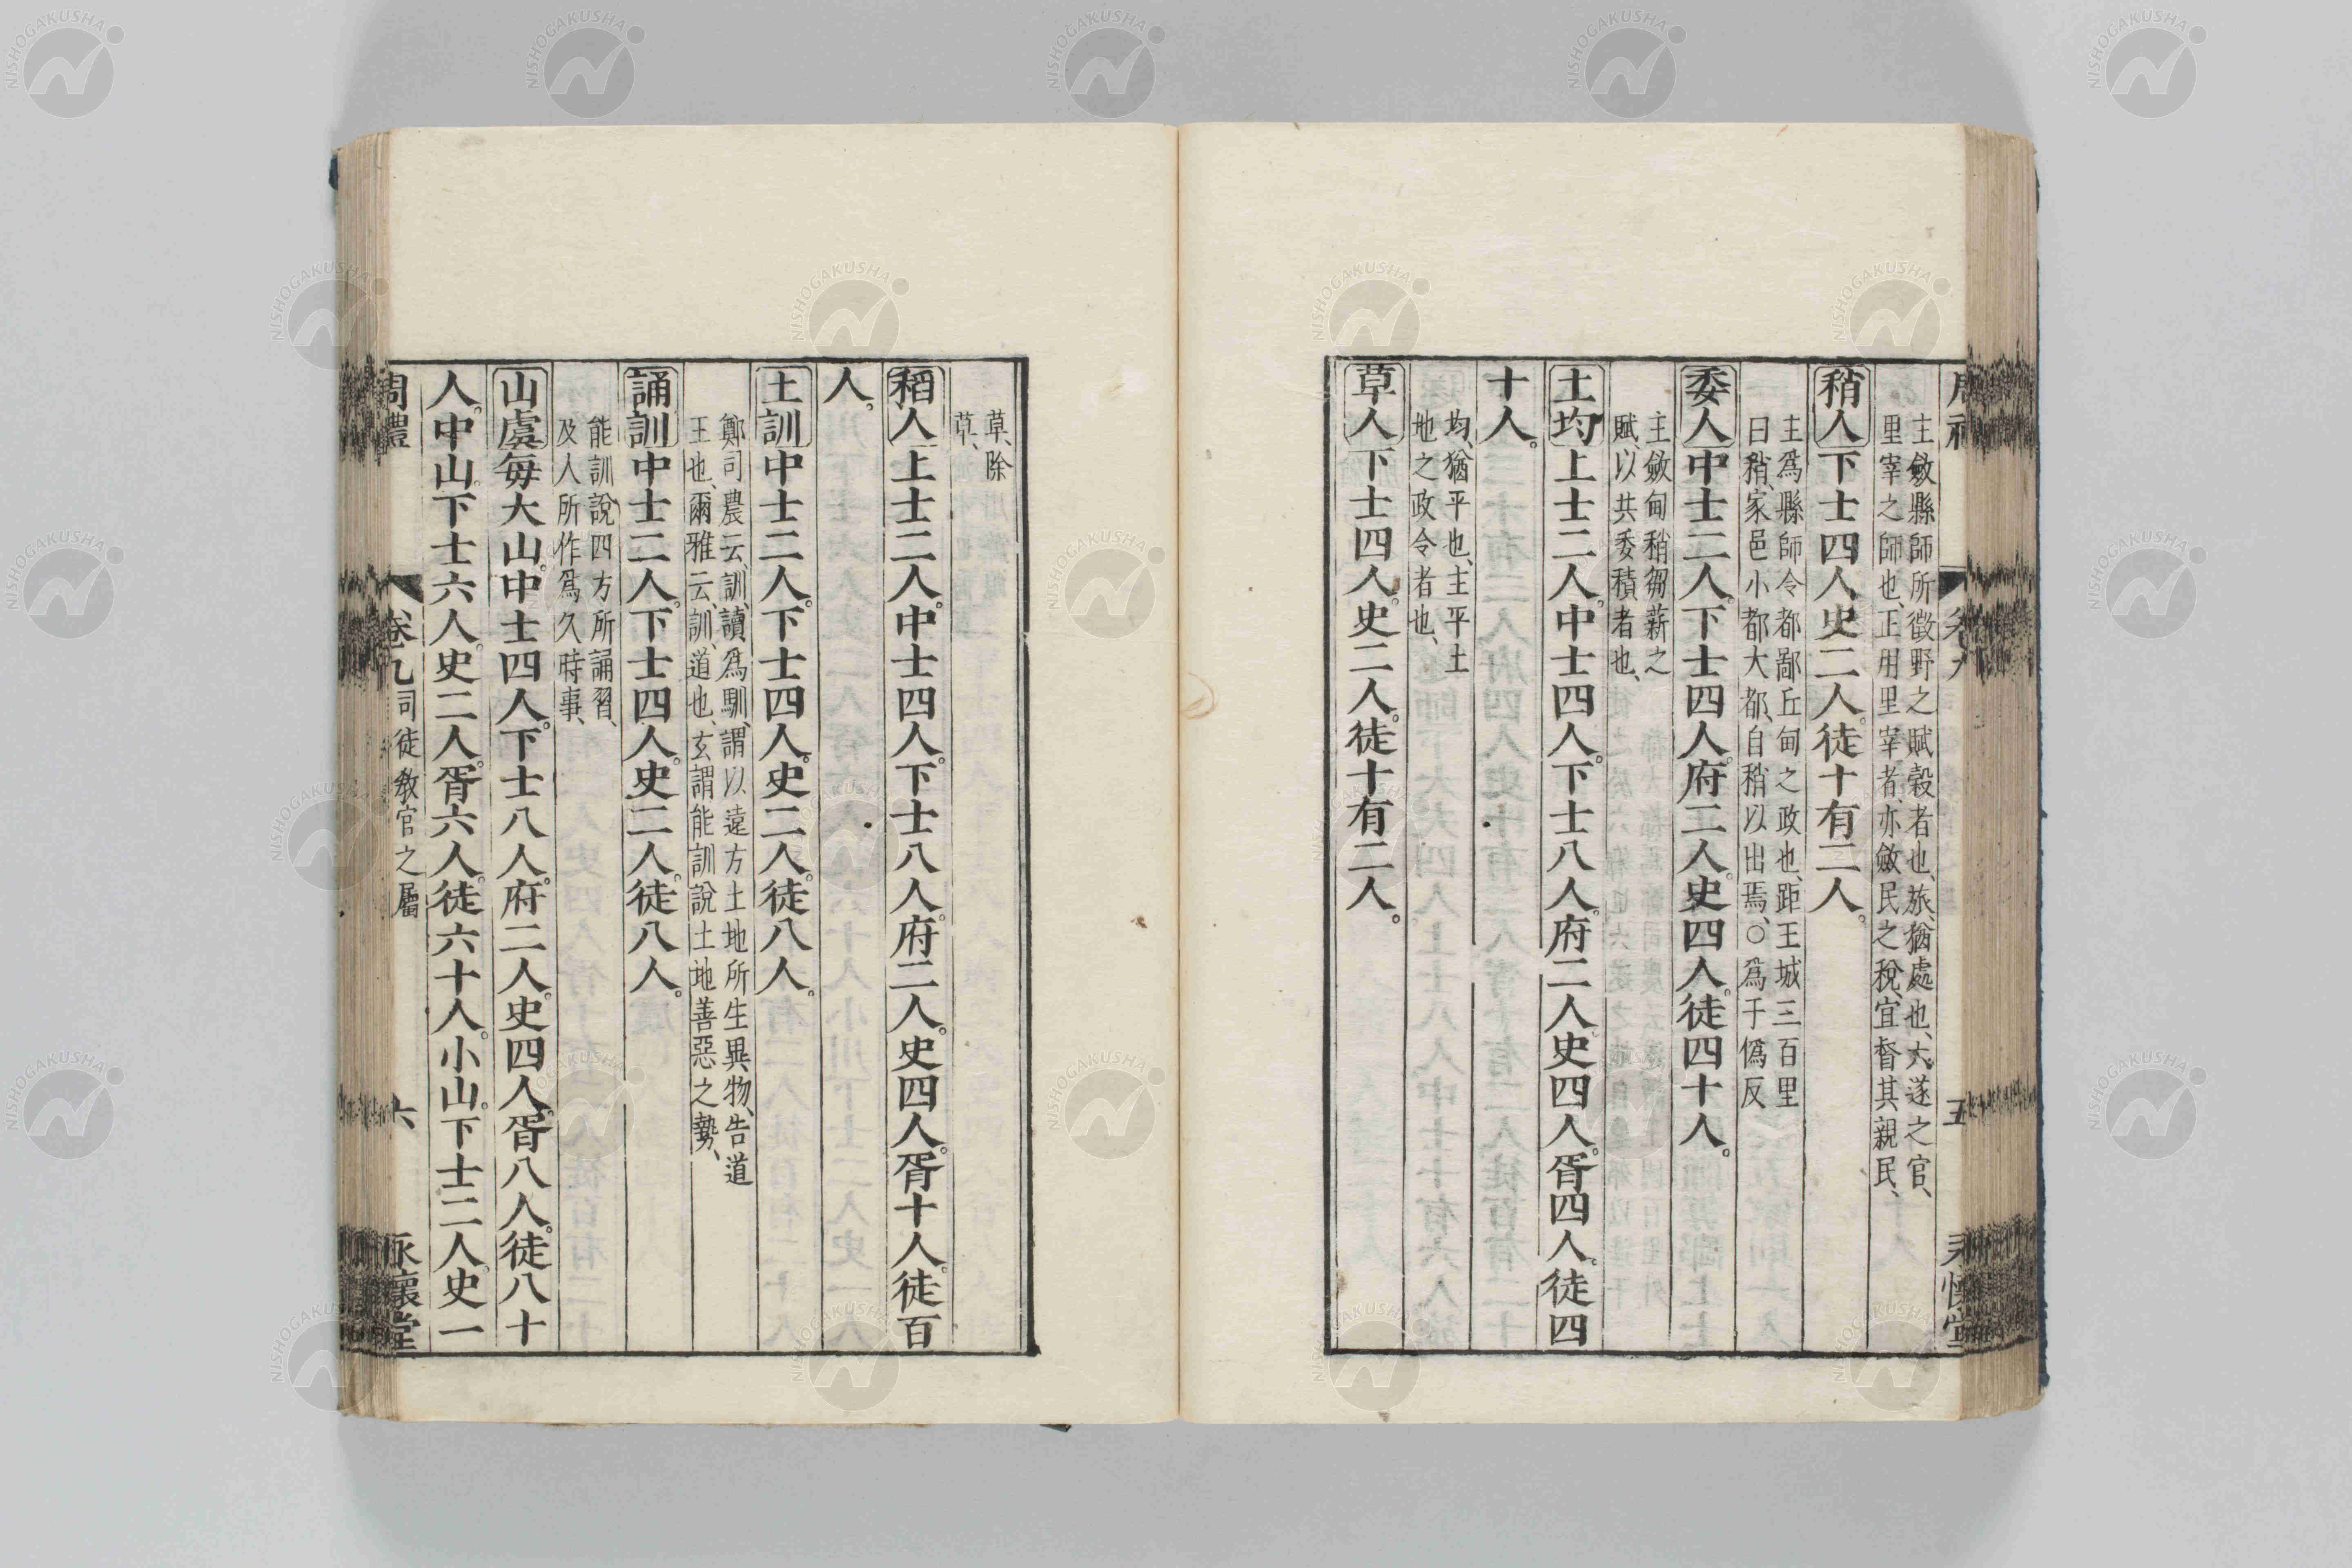 主斂縣師所徵野之賦穀者也、旅、猶處也、六遂之官、
里宰之師也、正用里宰者、亦斂民之稅、宜督其親民、
稍人下士四人史二人。徒十有二人。
主爲縣師令都鄙丘甸之政也、距王城三百里
曰稍、家邑小都大都、自稍以出焉、○爲于僞反
委人中士二人。下士四人。府二人。史四人。徒四十人。
主斂甸稍芻薪之
賦、以共委積者也、
土均上士二人。中士四人。下士八人。府二人。史四人。胥四人。徒四
十人。
均、猶平也、主平土
地之政令者也、
草人下士四人。史二人。徒十有二人。
五
草、除
草、
稻人上士二人。中士四人。下士八人。府二人。史四人。胥十人。徒百
人。
土訓中士二人。下士四人。史二人。徒八人。
鄭司農云、訓、讀爲馴、謂以遠方土地所生異物、告道
王也、爾雅云、訓、道也、玄謂能訓說土地善惡之勢、
誦訓中士二人。下士四人。史二人。徒八人。
能訓說四方所誦習、
及人所作爲久時事、
山虞每大山。中士四人。下士八人。府二人。史四人。胥八人。徒八十
人。中山。下士六人。史二人。胥六人。徒六十人。小山。下士二人。史一
周禮 卷九司徒教官之屬 六 永懷堂
NISHOGAKUSHA